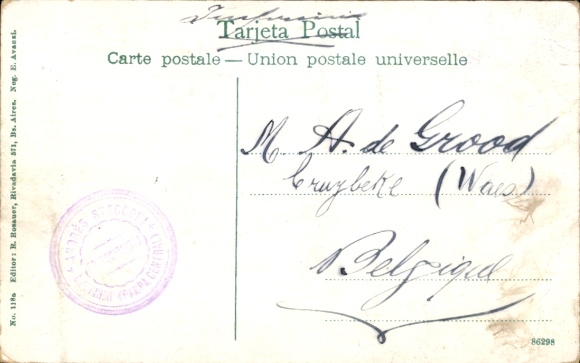 Tarjeta Postal
Carte postale — Union postale universelle
M. A. de Grood
Cruybeke (Waes)
Belgique
No. 118a Editor: R. Rosauer, Rivadavia 571, Bs. Aires. Neg. E. Avanzi.
86298